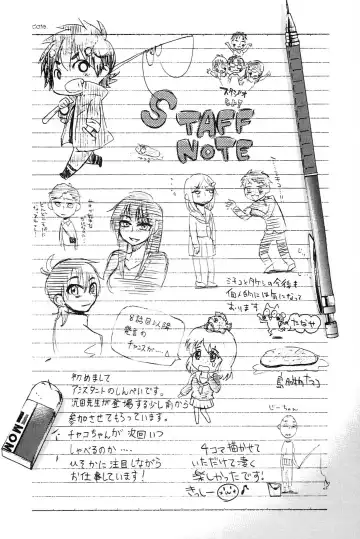 date
STAFF
NOTE
スタジオ
ミネコとタケシの今後も
個人的には気になって
おります
たなせ
8話目以降
発言の
チャンスが…
初めまして
アシスタントのしんぺいです。
沢田先生が登場する少し前から
参加させてもらっています。
チャコちゃんが次回いつ
しゃべるのか…
ひそかに注目しながら
お仕事しています!
4コマ描かせて
いただけて凄く
楽しかったです!
きっしー
MOM